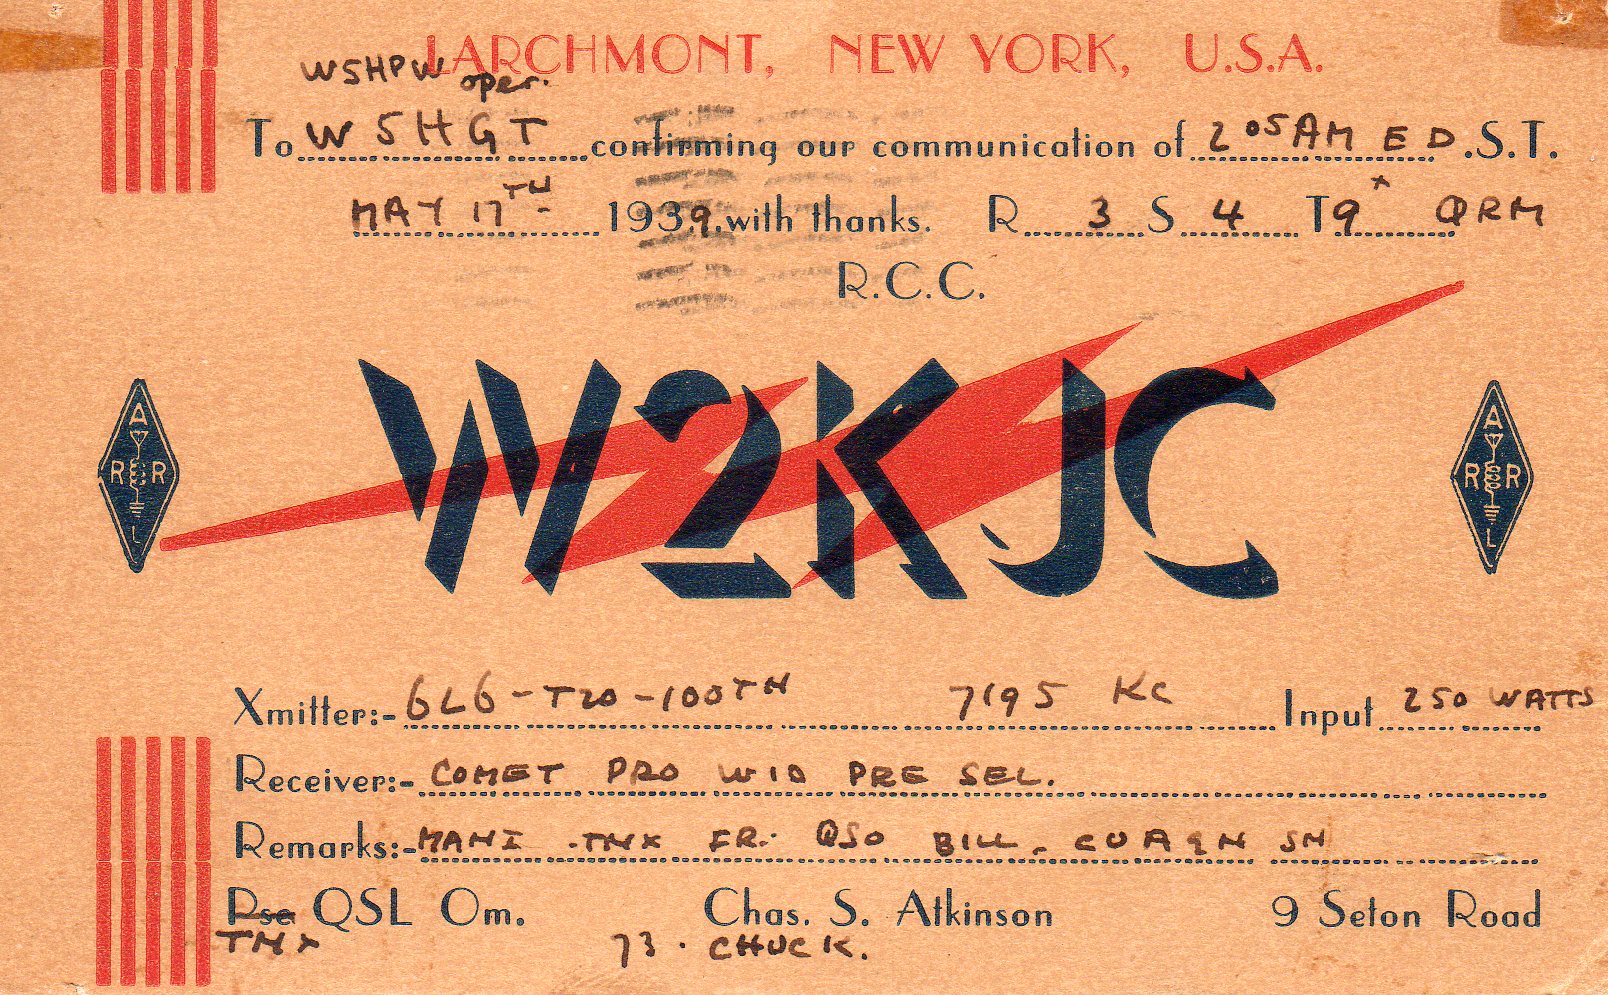 LARCHMONT, NEW YORK, U.S.A.
W5HPW oper.
To W5HGT confirming our communication of 2 05 AM E D.S.T.
MAY 17TH - 1939, with thanks. R 3 S 4 T 9x QRM
R.C.C.
W2KJC
A R R L
A R R L
Xmitter:- 6L6 - T20 - 100TH 7195 KC Input 250 WATTS
Receiver:- COMET PRO WID PRE SEL.
Remarks:- MANI - TNX FR. QSO BILL. CUAGN SN
Pse QSL Om. Chas. S. Atkinson 9 Seton Road
TNX 73 . CHUCK.